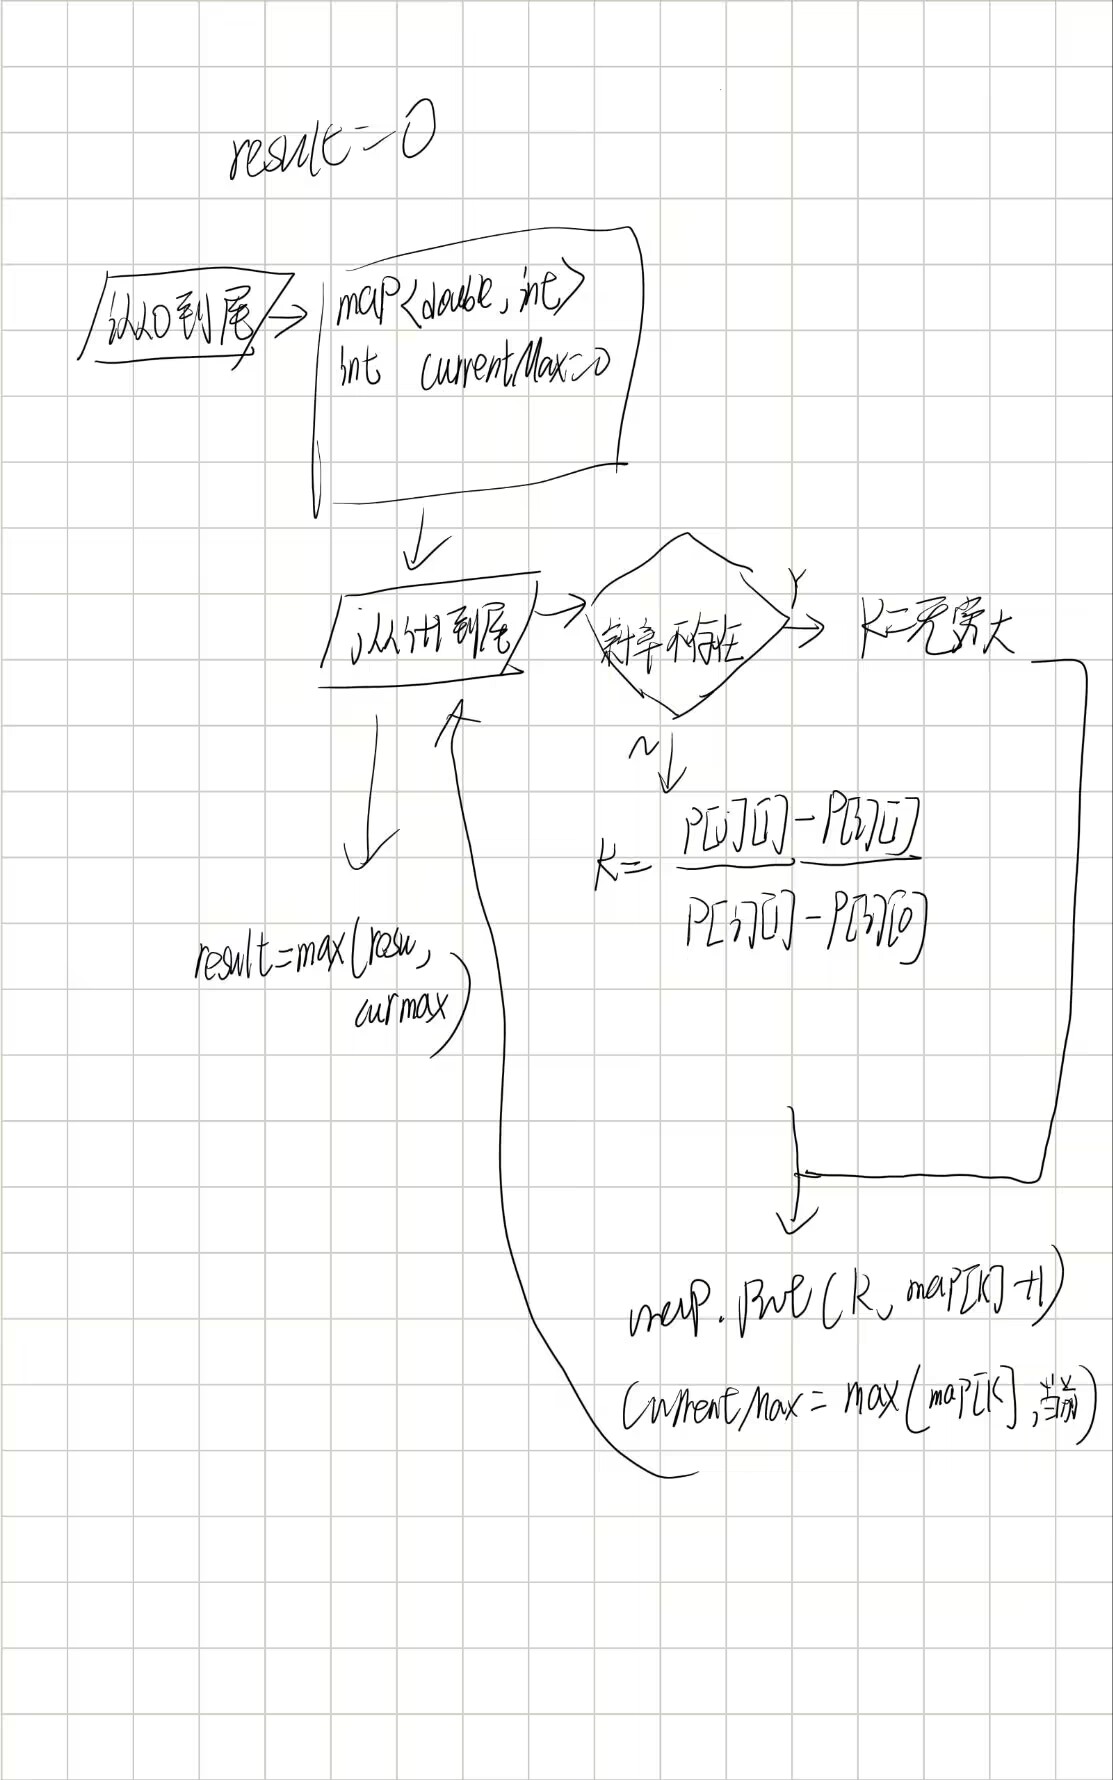 result=0
i从0到尾
map<double, int>
int currentMax=0
j从i+1到尾
斜率不存在
Y
K=无穷大
N
K=
P[j][1]-P[i][1]
P[j][0]-P[i][0]
result=max(resu,
curmax)
map.put(K, map[K]+1)
CurrentMax=max(map[K],当前)